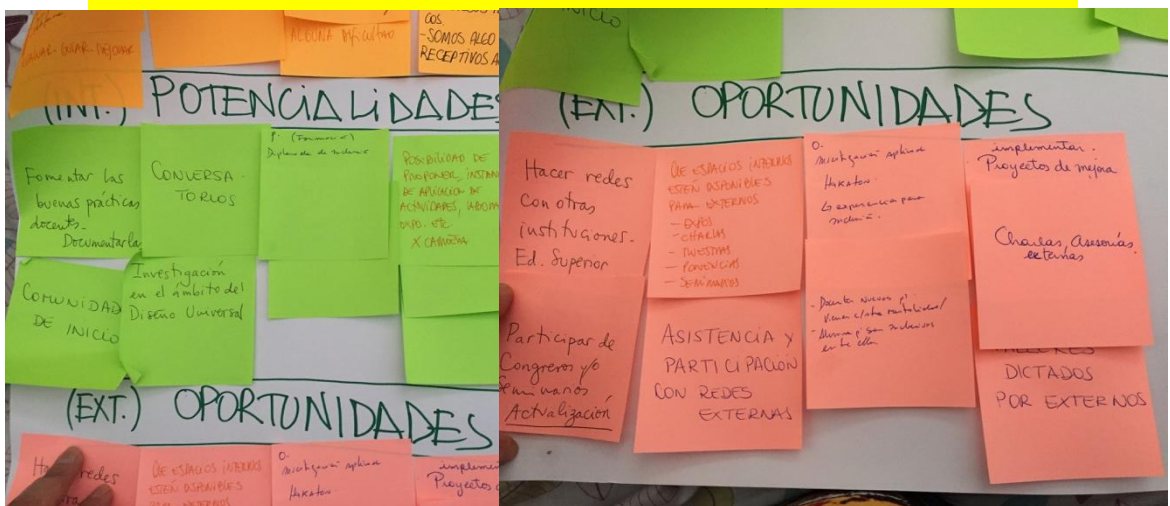 ALGUNA DIFICULTAD
COS.
-SOMOS ALGO
RECEPTIVOS A
(INT.) POTENCIALIDADES
Fomentar las
buenas prácticas
docents.
Documentarla
CONVERSA-
TORIOS
P: (Formación)
Diplomado de inclusión
POSIBILIDAD DE
PROPONER, INSTAN
DE APLICACIÓN DE
ACTIVIDADES,
EXPO. ETC.
X CARRERA
COMUNIDAD
DE INICIO
Investigación
en el ámbito del
Diseño Universal
(EXT.) OPORTUNIDADES
redes
QUE ESPACIOS INTERNOS
ESTÉN DISPONIBLES
O.
investigación aplicada
Hakaton
Proyectos
INICIO
(EXT.) OPORTUNIDADES
Hacer redes
con otras
instituciones.
Ed. Superior
QUE ESPACIOS INTERNOS
ESTÉN DISPONIBLES
PARA EXTERNOS
- EXPOS
- CHARLAS
- MUESTRAS
- PONENCIAS
- SEMINARIOS
O.
investigación aplicada
Hakaton
inclusión.
implementar.
Proyectos de mejora
Charlas, Asesorías.
externas
Participar de
Congresos y/o
Seminarios
Actualización
ASISTENCIA Y
PARTICIPACIÓN
CON REDES
EXTERNAS
- Docentes nuevos q'
vienen c/otra mentalidad
- Alumnos q' son inclusivos
entre ellos
TALLERES
DICTADOS
POR EXTERNOS